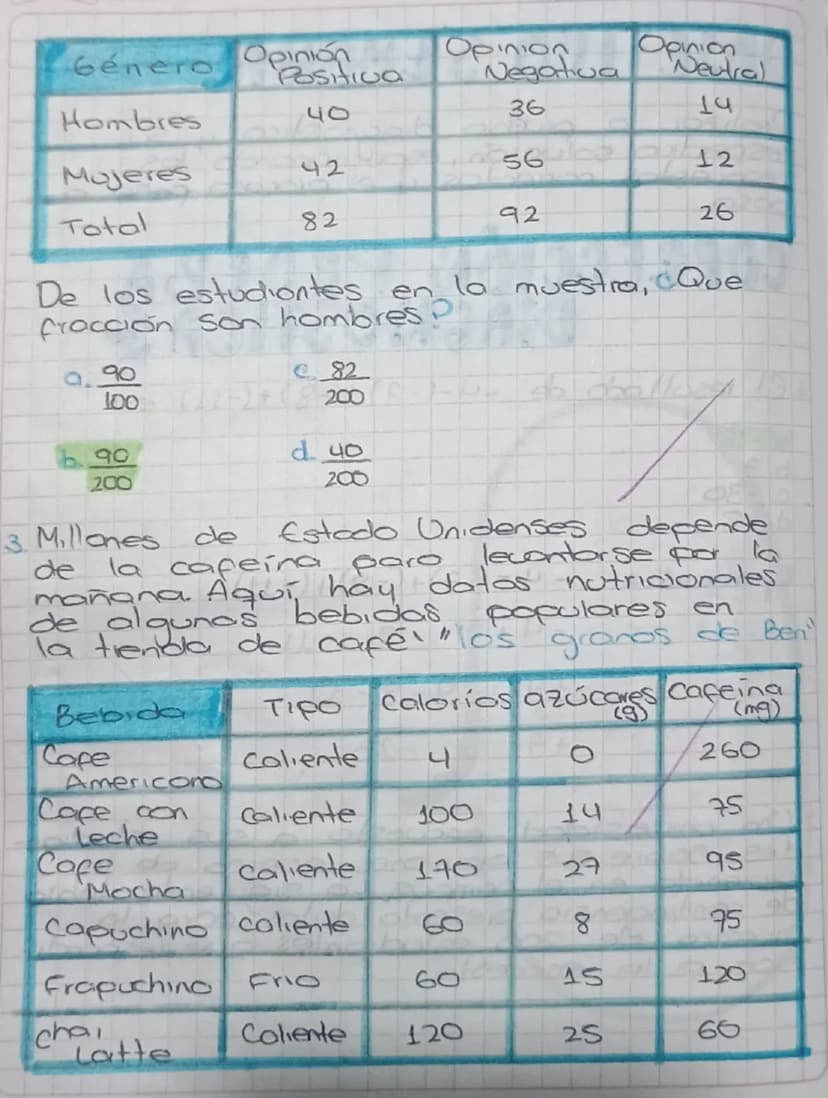 Género Opinión Positiva Opinion Negativa Opinion Neutral
Hombres 40 36 14
Mujeres 42 56 12
Total 82 92 26
De los estudiantes en la muestra, ¿Que
fracción son hombres?
a. 90/100 c. 82/200
b. 90/200 d. 40/200
3 Millones de Estado Unidenses depende
de la cafeina para levantarse por la
mañana. Aqui hay datos nutricionales
de algunas bebidas populares en
la tienda de café "los granos de Ben"
Bebida Tipo calorías azúcares (g) cafeina (mg)
Cafe Americano caliente 4 0 260
Cafe con Leche caliente 100 14 75
Cafe Mocha caliente 170 27 95
Capuchino caliente 60 8 75
Frapuchino Frio 60 15 120
chai Latte Caliente 120 25 60